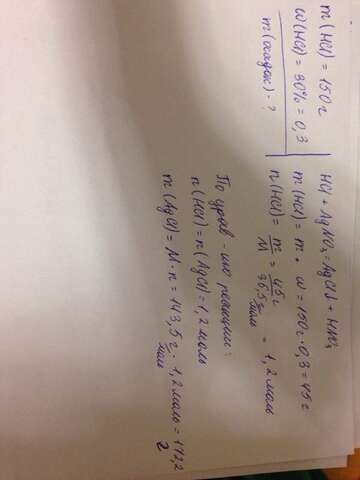 m(HCl) = 150г
w(HCl) = 30% = 0,3
m(осадок) - ?
HCl + AgNO₃ = AgCl↓ + HNO₃
m(HCl) = m · w = 150г · 0,3 = 45г
n(HCl) = m/M = 45г / 36,5 г/моль = 1,2 моль
По урав-нию реакции:
n(HCl) = n(AgCl) = 1,2 моль
m(AgCl) = M · n = 143,5 г/моль · 1,2 моль = 172,2 г